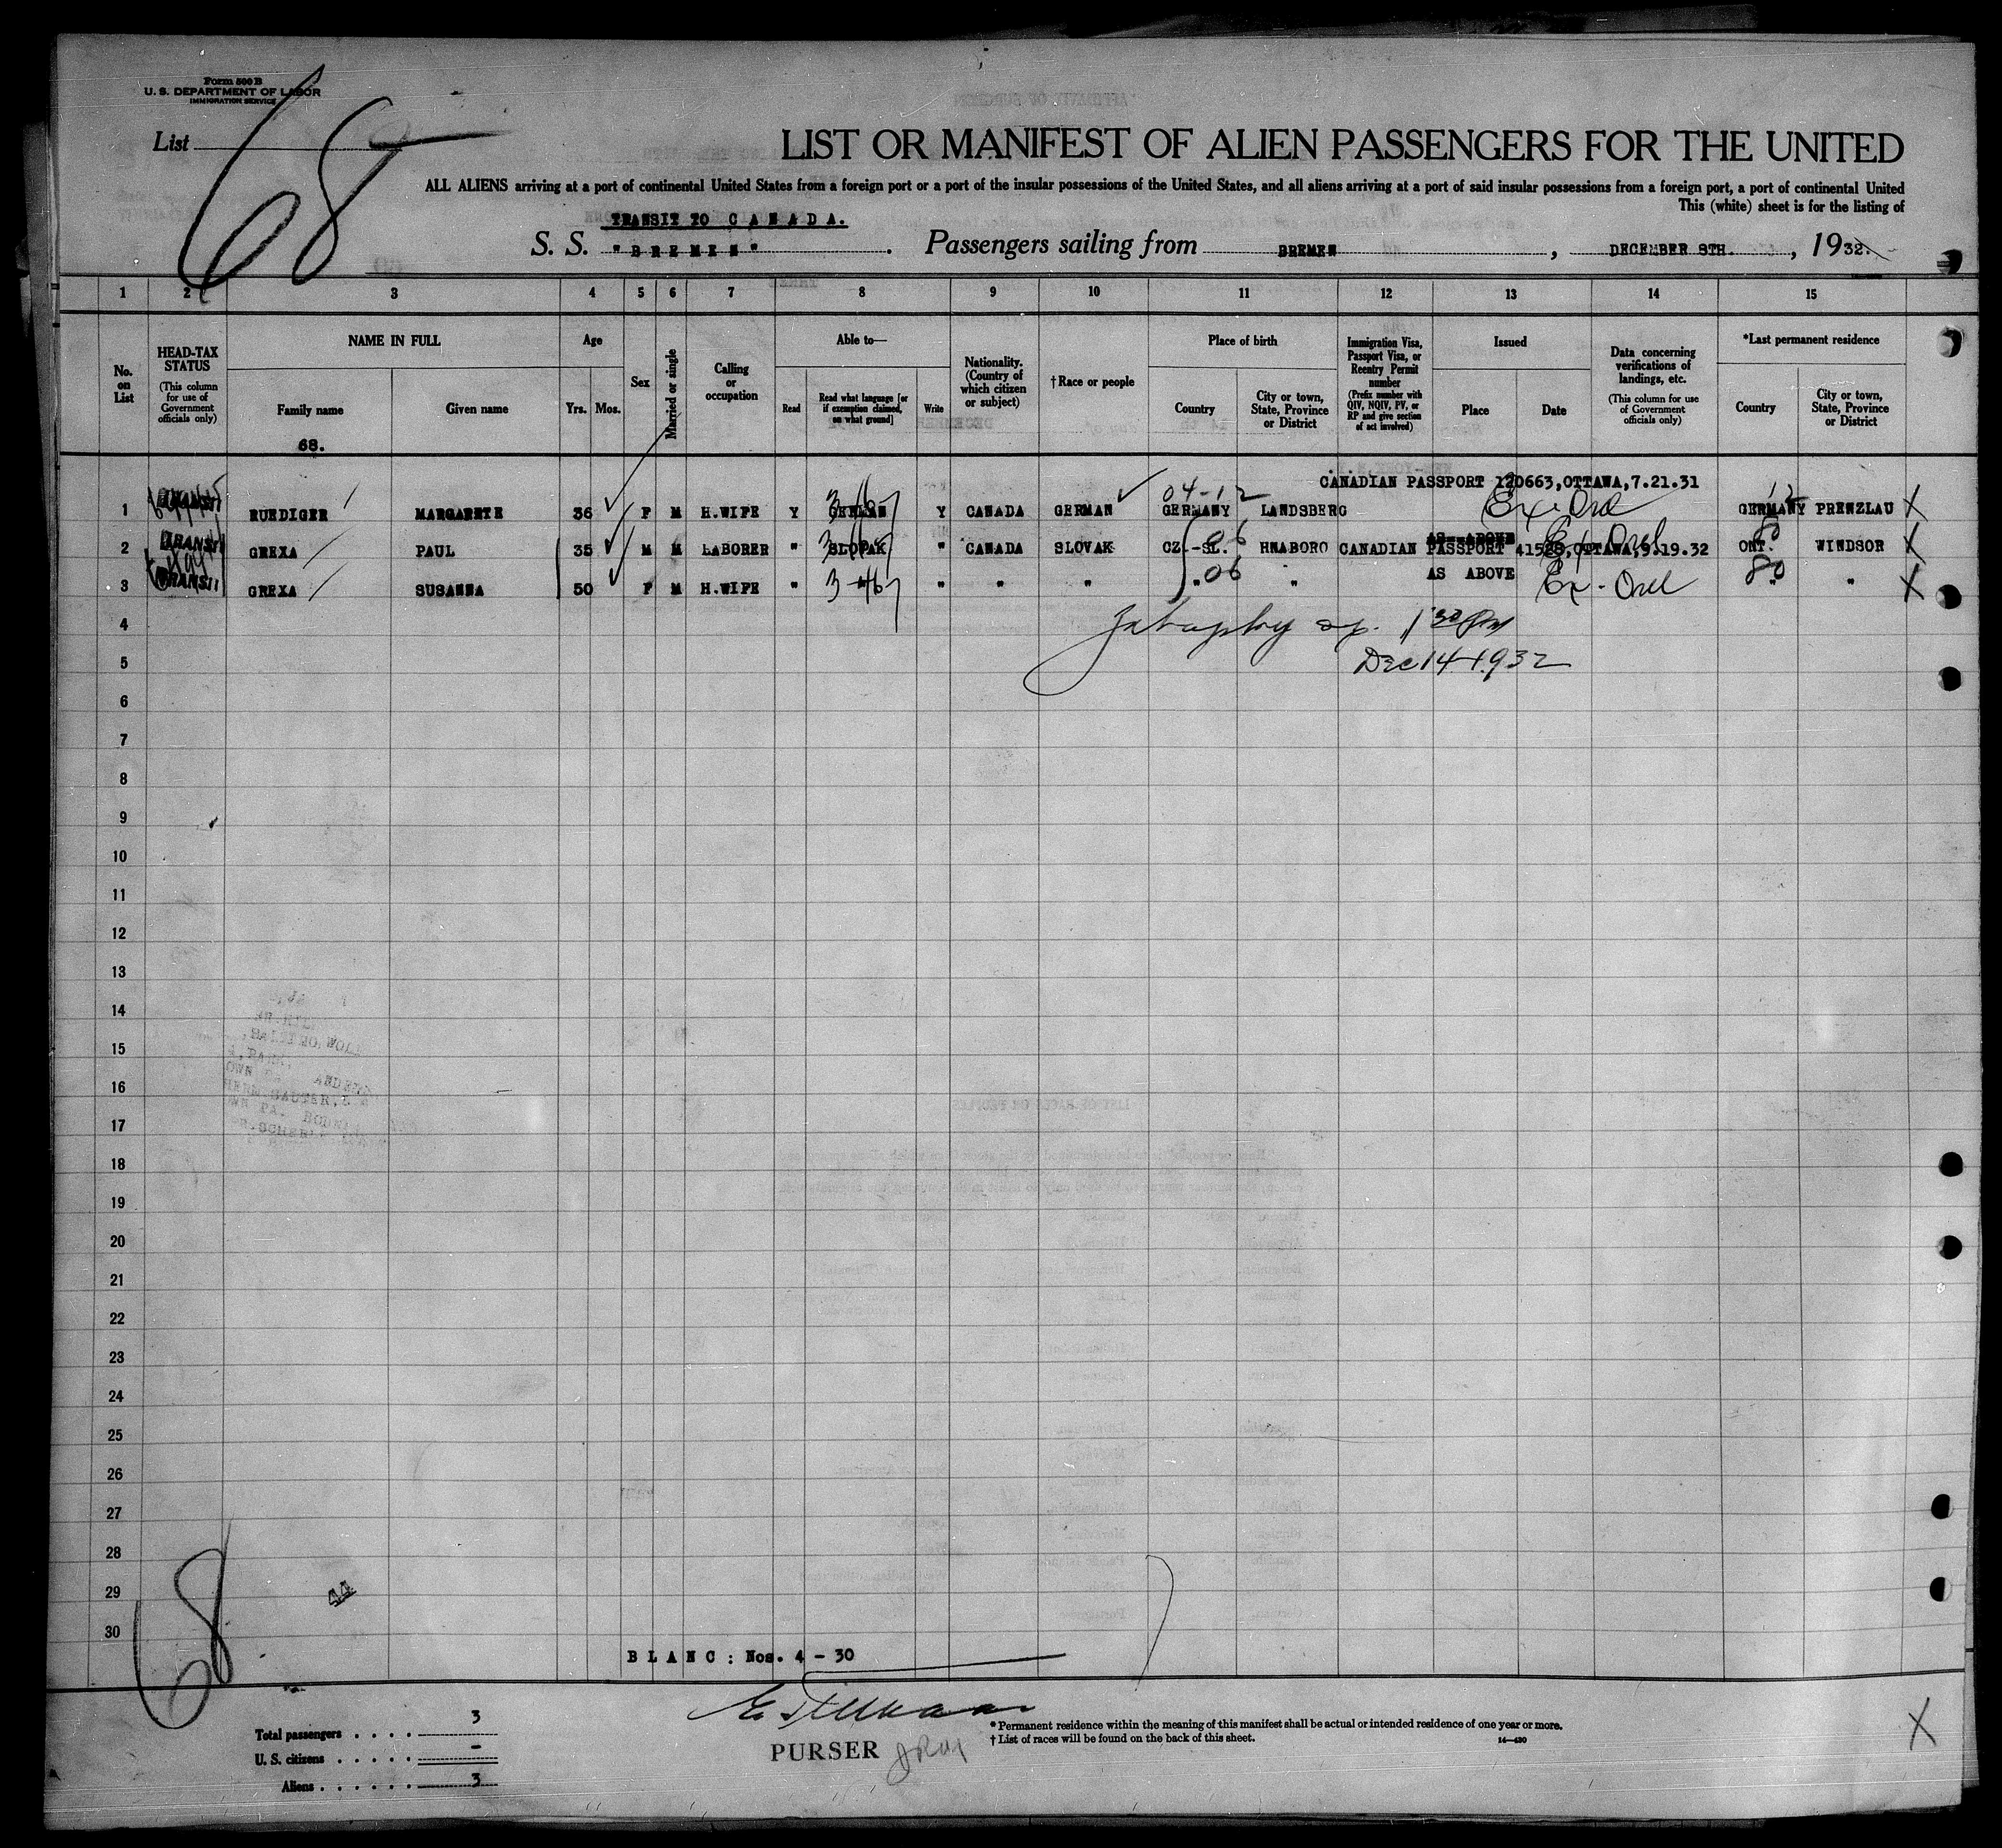 Form 500 B
U. S. DEPARTMENT OF LABOR
IMMIGRATION SERVICE
List 68
LIST OR MANIFEST OF ALIEN PASSENGERS FOR THE UNITED
ALL ALIENS arriving at a port of continental United States from a foreign port or a port of the insular possessions of the United States, and all aliens arriving at a port of said insular possessions from a foreign port, a port of continental United
This (white) sheet is for the listing of
TRANSIT TO C A N A D A.
S. S. "B R E M E N". Passengers sailing from BREMEN, DECEMBER 8TH., 1932.
1 2 3 4 5 6 7 8 9 10 11 12 13 14 15
No. on List
HEAD-TAX STATUS (This column for use of Government officials only)
NAME IN FULL
Family name
Given name
68.
Age
Yrs. Mos.
Sex
Married or single
Calling or occupation
Able to—
Read
Read what language [or if exemption claimed, on what ground]
Write
Nationality. (Country of which citizen or subject)
†Race or people
Place of birth
Country
City or town, State, Province or District
Immigration Visa, Passport Visa, or Reentry Permit number (Prefix number with QIV, NQIV, PV, or RP and give section of act involved)
Issued
Place
Date
Data concerning verifications of landings, etc. (This column for use of Government officials only)
*Last permanent residence
Country
City or town, State, Province or District
04-12 CANADIAN PASSPORT 120663,OTTAWA,7.21.31 12
1 TRANSIT RUEDIGER MARGARETE 36 F M H.WIFE Y GERMAN Y CANADA GERMAN GERMANY LANDSBERG GERMANY PRENZLAU X
06 AS ABOVE 80
2 TRANSIT GREXA PAUL 35 M M LABORER " SLOVAK " CANADA SLOVAK CZ.-SL. HNABORO CANADIAN PASSPORT 41528,OTTAWA,9.19.32 ONT. WINDSOR X
06 AS ABOVE 80
3 TRANSIT GREXA SUSANNA 50 F M H.WIFE " " " " " " " " " X
4 1 30 PM
5 Dec 14-1932
6
7
8
9
10
11
12
13
14
15
16
17
18
19
20
21
22
23
24
25
26
27
28
29
30
44
68
B L A N C : Nos. 4 - 30
Total passengers . . . . 3
U. S. citizens . . . . . -
Aliens . . . . . . 3
PURSER
* Permanent residence within the meaning of this manifest shall be actual or intended residence of one year or more.
† List of races will be found on the back of this sheet.
14—420
X